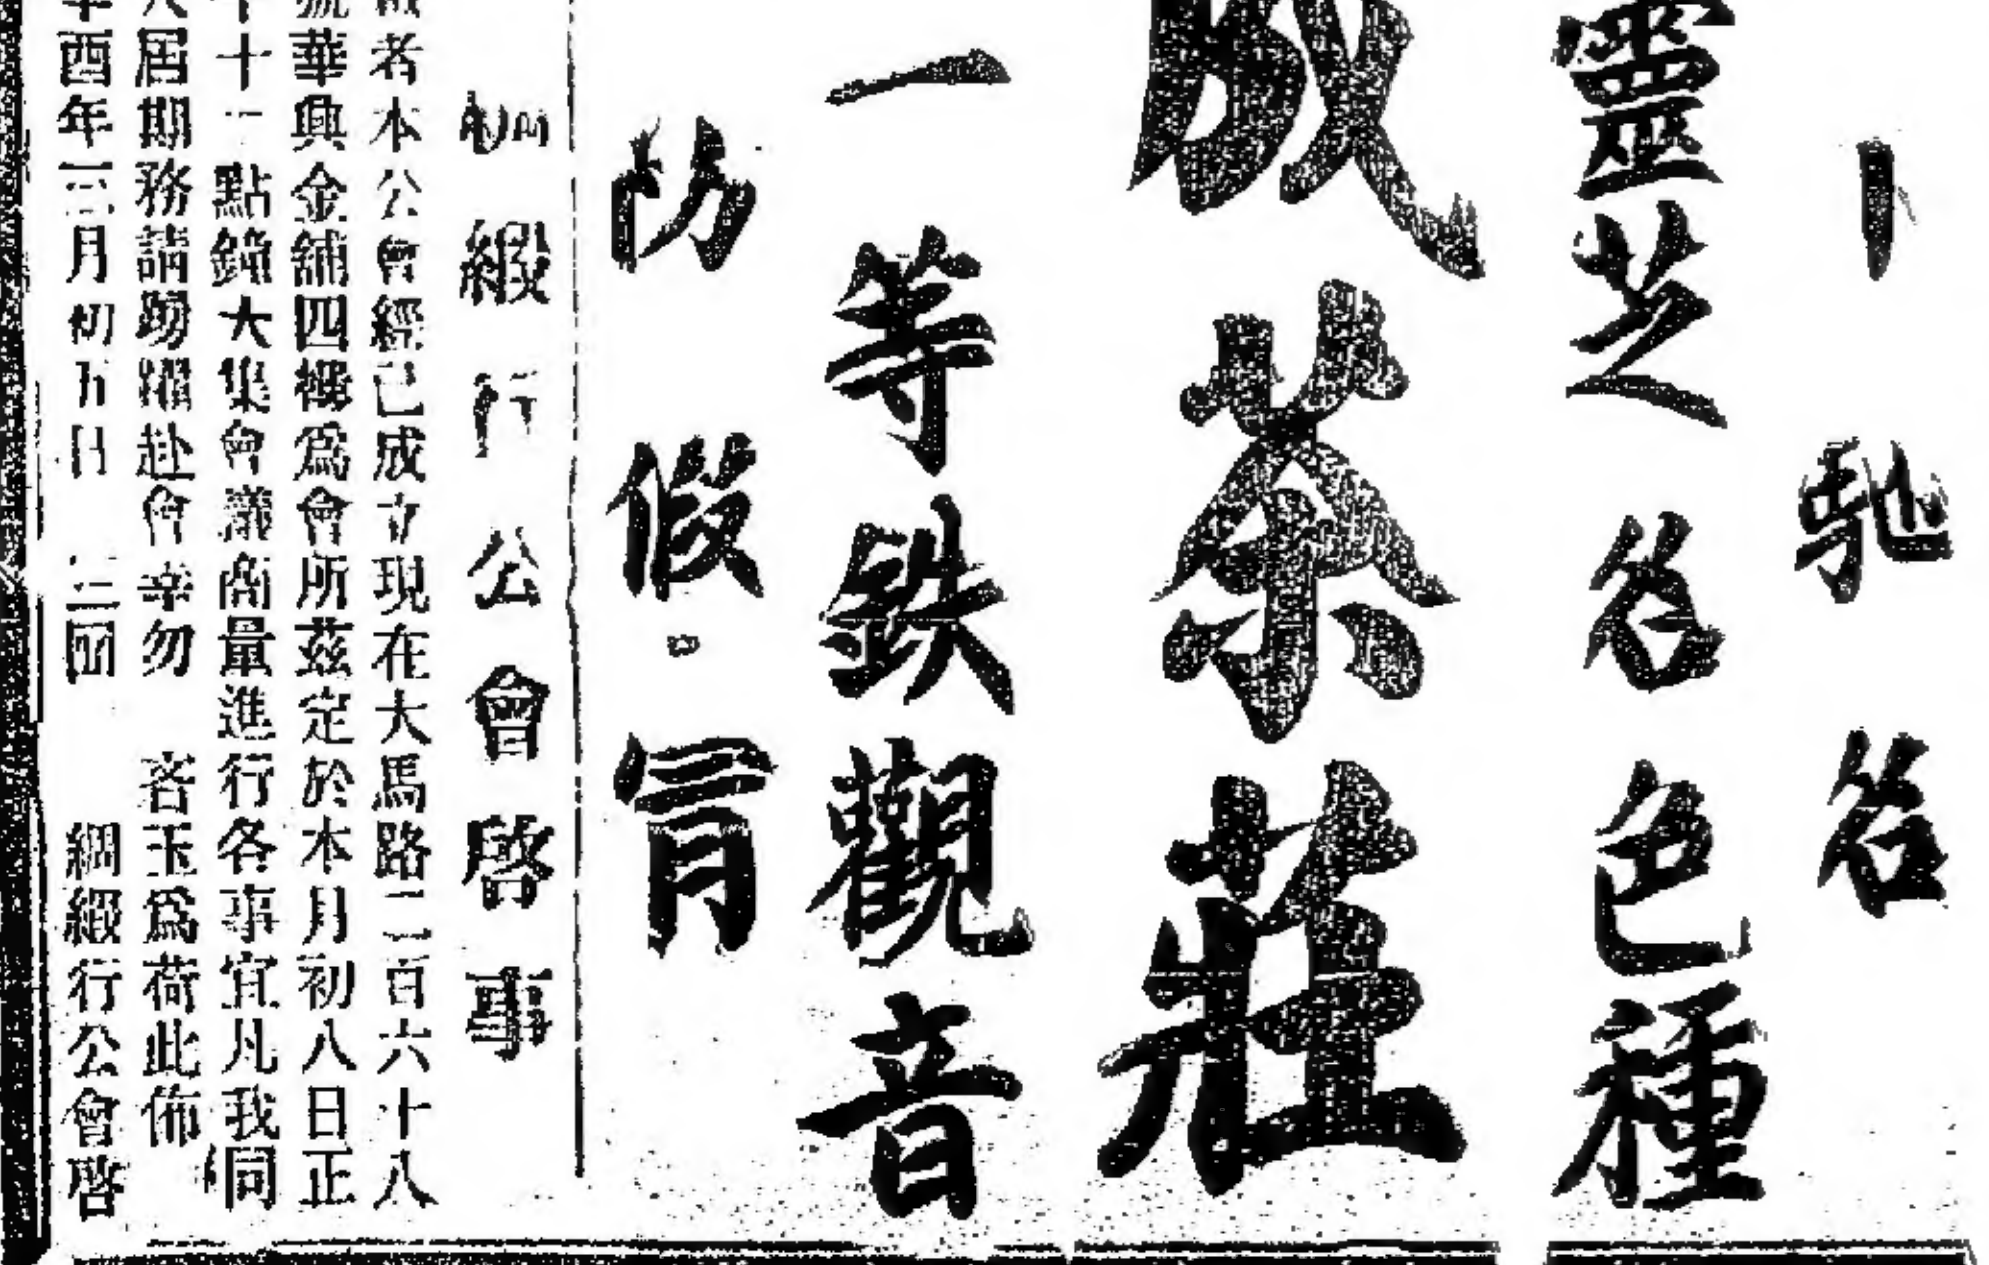 馳名
靈芝名色種
成茶莊
一等鉄觀音
防假冒
綢緞行公會啓事
啟者本公會經已成立現在大馬路二百六十八
號華興金舖四樓為會所茲定於本月初八日正
午十一點鐘大集會議商量進行各事宜凡我同
人居期務請踴躍赴會幸勿　吝玉為荷此佈
辛酉年三月初五日　　綢緞行公會啓